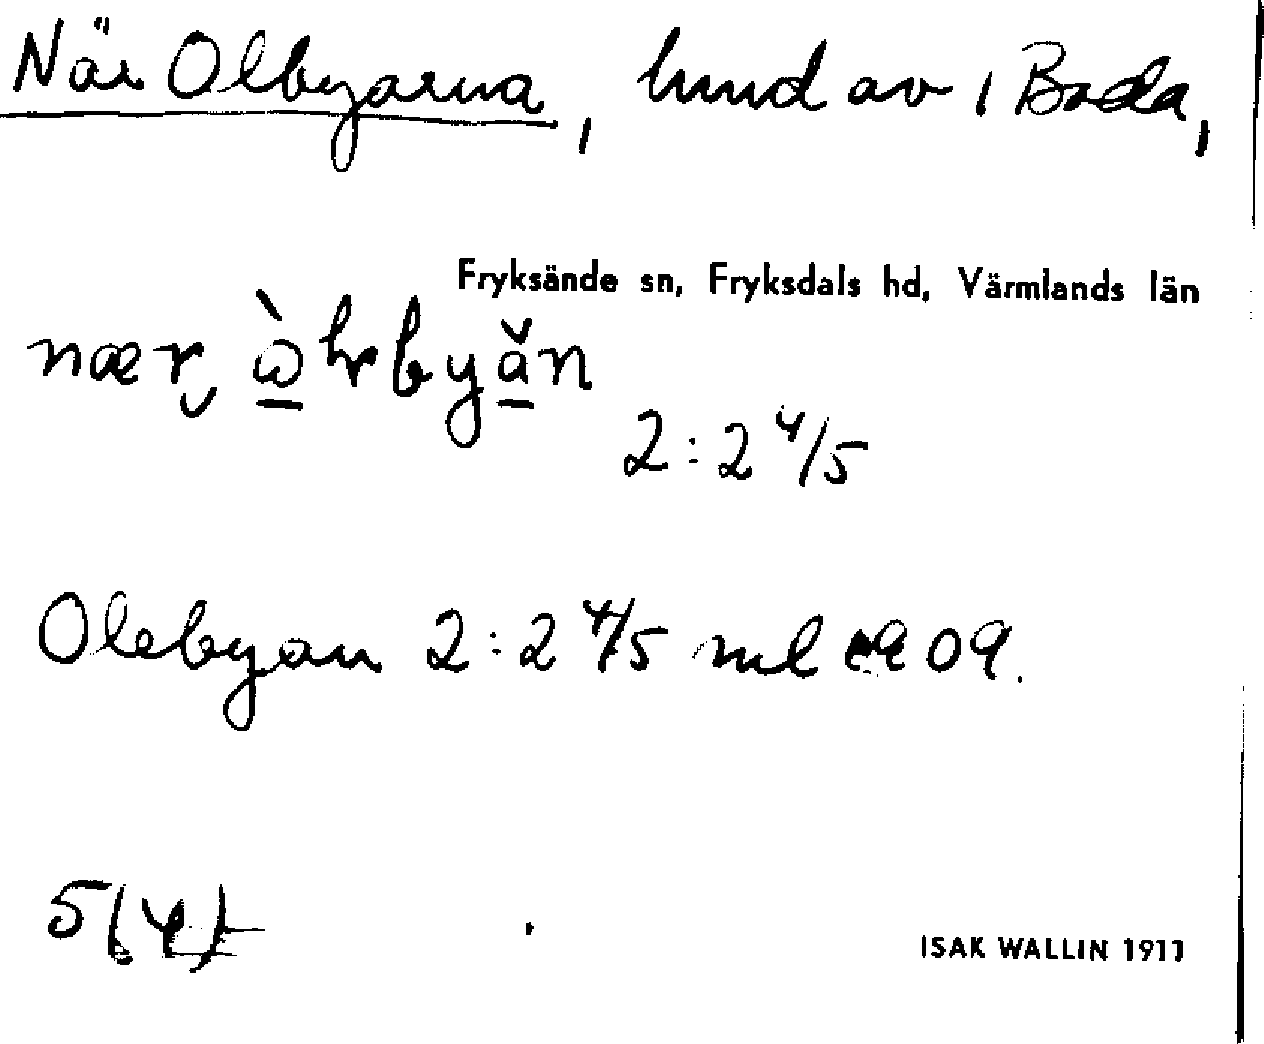 När Olbyarna, hmd av i Bada,
Fryksände sn, Fryksdals hd, Värmlands län
2:2 4/5
Olebyan 2:2 4/5 ml 09.
5(4)
ISAK WALLIN 1911